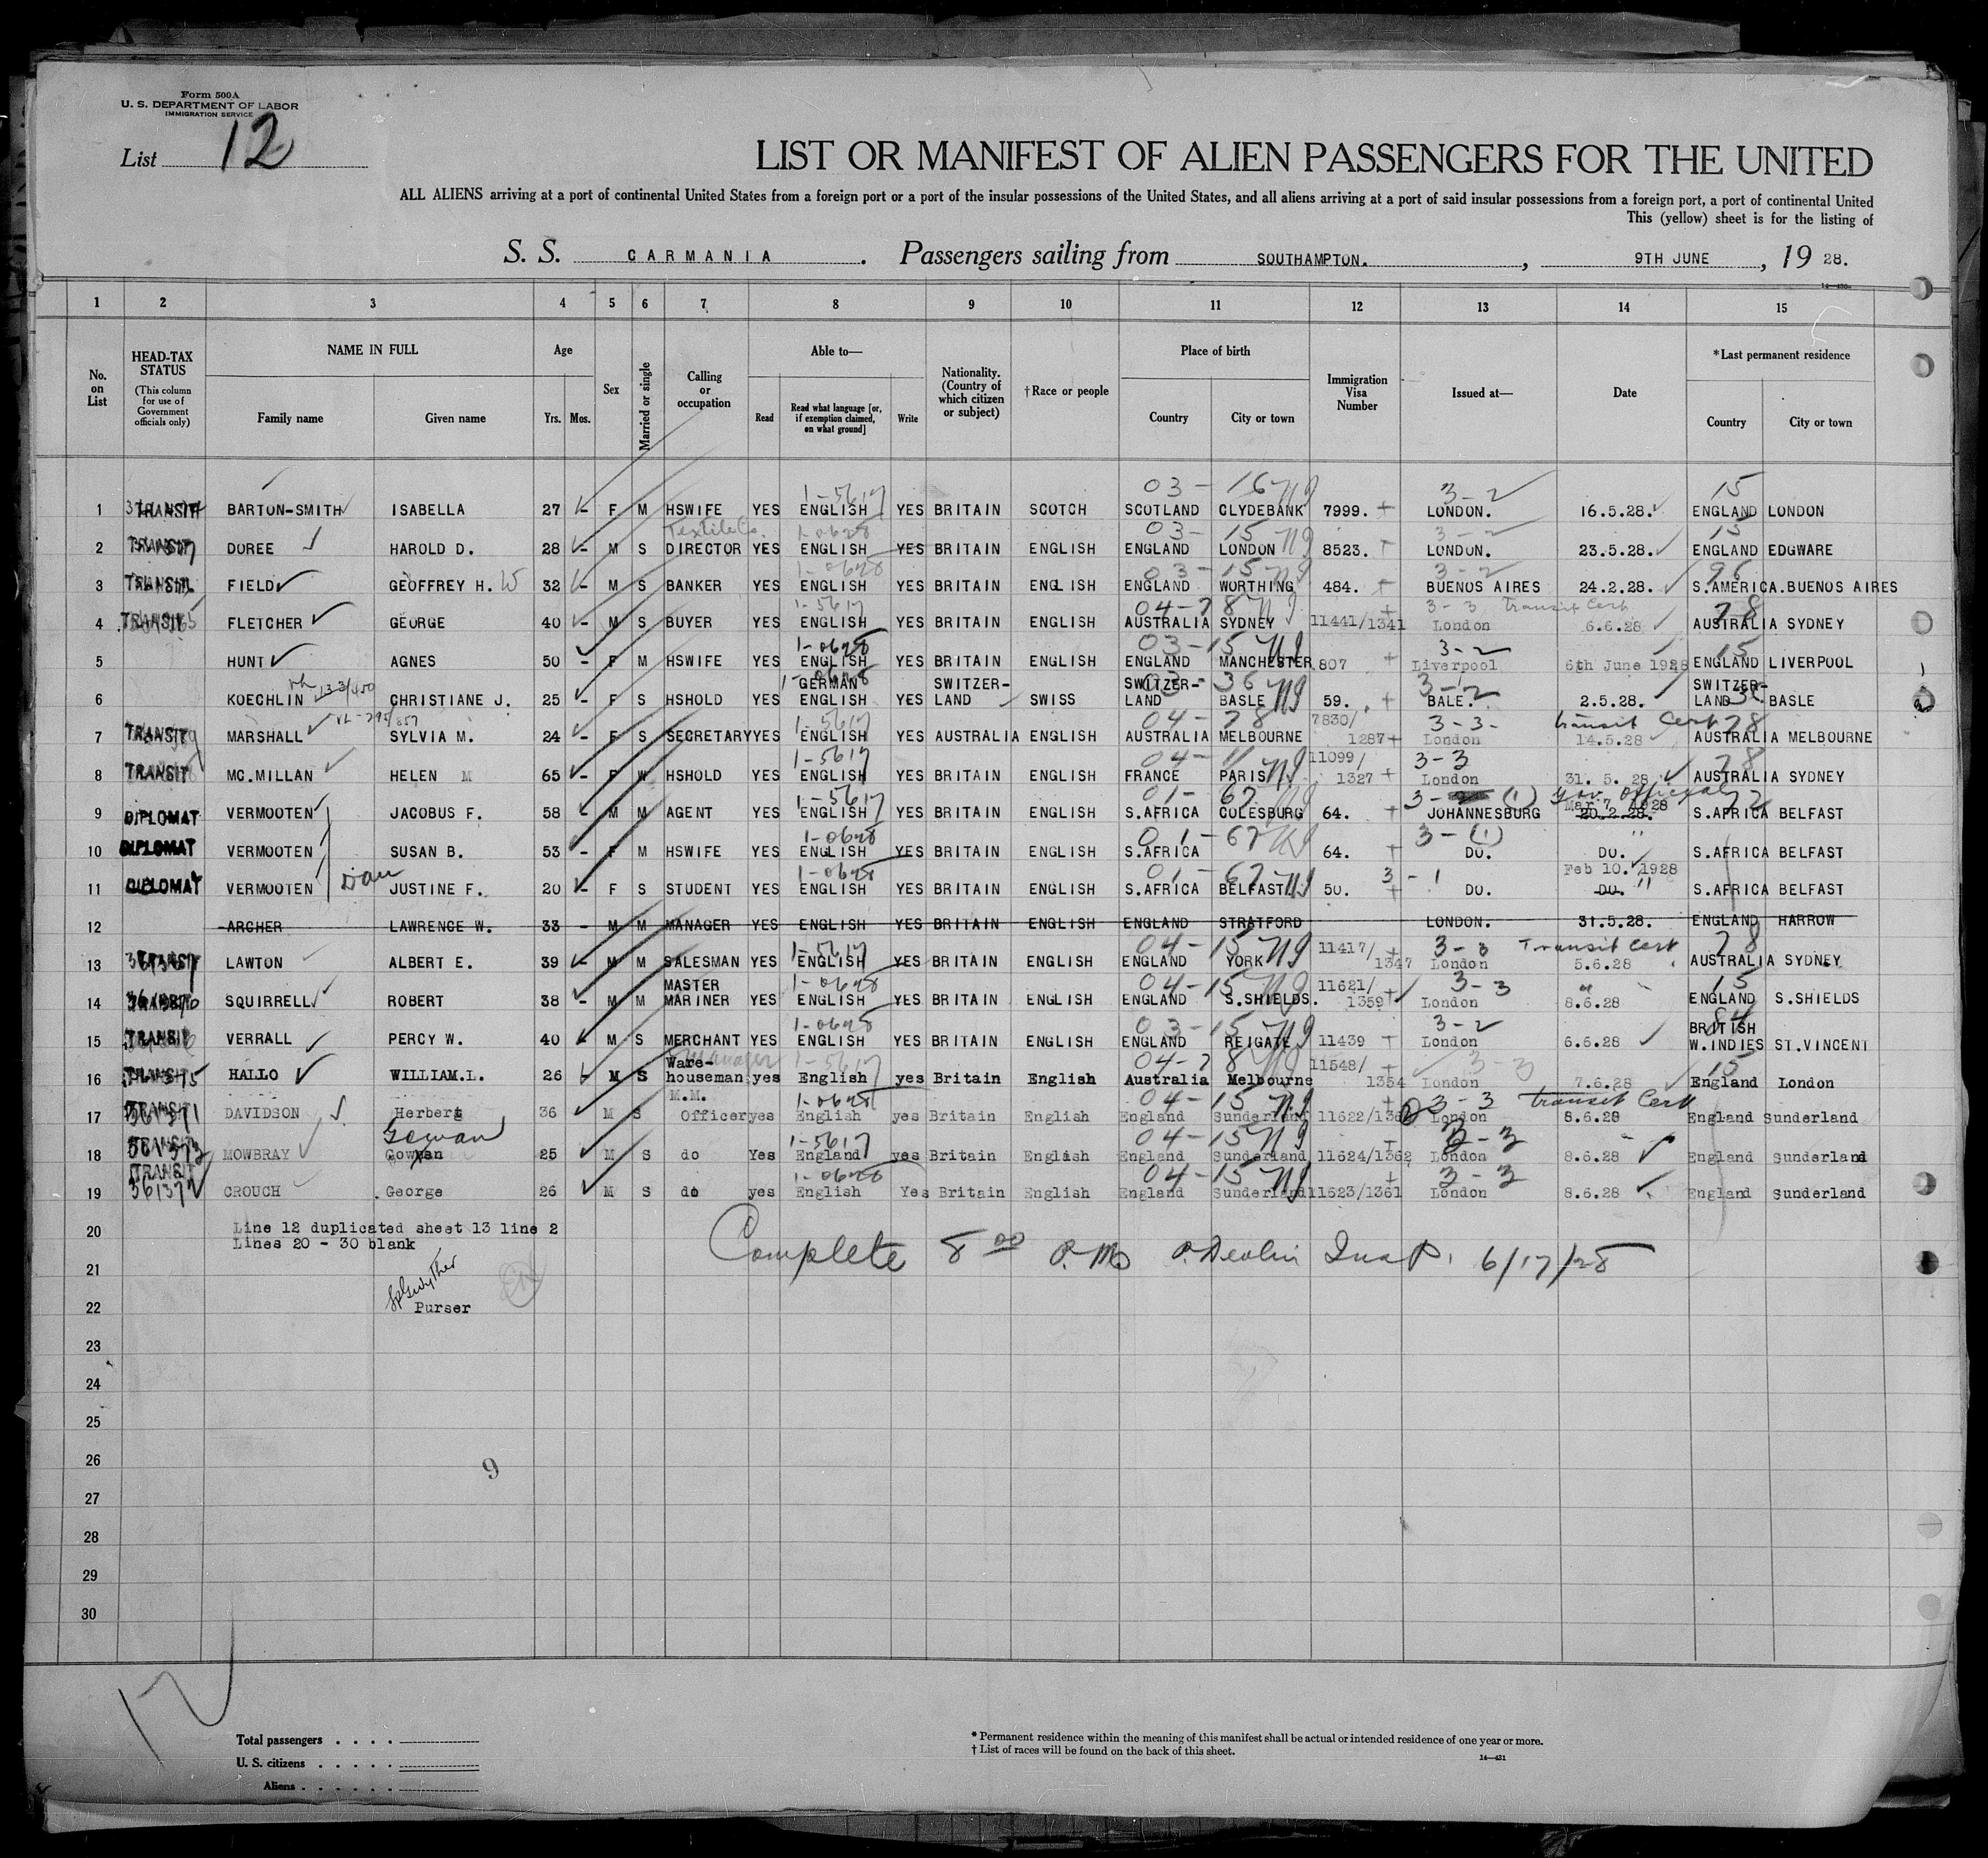 Form 500A
U. S. DEPARTMENT OF LABOR
IMMIGRATION SERVICE
List 12
LIST OR MANIFEST OF ALIEN PASSENGERS FOR THE UNITED
ALL ALIENS arriving at a port of continental United States from a foreign port or a port of the insular possessions of the United States, and all aliens arriving at a port of said insular possessions from a foreign port, a port of continental United
This (yellow) sheet is for the listing of
S. S. CARMANIA. Passengers sailing from SOUTHAMPTON., 9TH JUNE, 19 28.
1 2 3 4 5 6 7 8 9 10 11 12 13 14 15
No. on List
HEAD-TAX STATUS (This column for use of Government officials only)
NAME IN FULL Family name Given name
Age Yrs. Mos.
Sex
Married or single
Calling or occupation
Able to— Read Read what language [or, if exemption claimed, on what ground] Write
Nationality. (Country of which citizen or subject)
†Race or people
Place of birth Country City or town
Immigration Visa Number
Issued at—
Date
*Last permanent residence Country City or town
03 - 16 3-2 15
1 TRANSIT BARTON-SMITH ISABELLA 27 - F M HSWIFE YES 1-5617 ENGLISH YES BRITAIN SCOTCH SCOTLAND CLYDEBANK 7999. LONDON. 16.5.28. ENGLAND LONDON
Textile Co. 1-0628 03 - 15 3-2 15
2 TRANSIT DOREE HAROLD D. 28 - M S DIRECTOR YES ENGLISH YES BRITAIN ENGLISH ENGLAND LONDON 8523. LONDON. 23.5.28. ENGLAND EDGWARE
1-0628 03 - 15 3-2
3 TRANSIT FIELD GEOFFREY H. W 32 - M S BANKER YES ENGLISH YES BRITAIN ENGLISH ENGLAND WORTHING 484. BUENOS AIRES 24.2.28. S.AMERICA.BUENOS AIRES
1-5617 04-78 3-3 Transit Cert 78
4 TRANSIT FLETCHER GEORGE 40 - M S BUYER YES ENGLISH YES BRITAIN ENGLISH AUSTRALIA SYDNEY 11441/1341 London 6.6.28 AUSTRALIA SYDNEY
1-0628 03-15 3-2 15
5 HUNT AGNES 50 - F M HSWIFE YES ENGLISH YES BRITAIN ENGLISH ENGLAND MANCHESTER 807 Liverpool 6th June 1928 ENGLAND LIVERPOOL
1-0628 GERMAN SWITZER- SWITZER- 36 SWITZER-
6 KOECHLIN CHRISTIANE J. 25 - F S HSHOLD YES ENGLISH YES LAND SWISS LAND BASLE 59. BALE. 2.5.28. LAND BASLE
1-5617 04-78 7830/ 3-3- transit Cert 78
7 TRANSIT MARSHALL SYLVIA M. 24 - F S SECRETARY YES ENGLISH YES AUSTRALIA ENGLISH AUSTRALIA MELBOURNE 1287 London 14.5.28 AUSTRALIA MELBOURNE
1-5617 04-11 11099/ 3-3 78
8 TRANSIT MC.MILLAN HELEN M 65 - F W HSHOLD YES ENGLISH YES BRITAIN ENGLISH FRANCE PARIS 1327 London 31. 5. 28 AUSTRALIA SYDNEY
1-5617 01-67 3- (1) Gov. Official Mar 7 1928
9 DIPLOMAT VERMOOTEN JACOBUS F. 58 - M M AGENT YES ENGLISH YES BRITAIN ENGLISH S.AFRICA COLESBURG 64. JOHANNESBURG 20.2.28. S.AFRICA BELFAST
1-0628 01-67 3-(1) "
10 DIPLOMAT VERMOOTEN SUSAN B. 53 - F M HSWIFE YES ENGLISH YES BRITAIN ENGLISH S.AFRICA 64. DO. DO. S.AFRICA BELFAST
1-0628 01-67 3-1 Feb 10. 1928
11 DIPLOMAT VERMOOTEN Dau JUSTINE F. 20 - F S STUDENT YES ENGLISH YES BRITAIN ENGLISH S.AFRICA BELFAST 50. DO. DO. " S.AFRICA BELFAST
12 ARCHER LAWRENCE W. 33 - M M MANAGER YES ENGLISH YES BRITAIN ENGLISH ENGLAND STRATFORD LONDON. 31.5.28. ENGLAND HARROW
1-5617 04-15 11417/ 3-3 Transit Cert 78
13 TRANSIT LAWTON ALBERT E. 39 - M M SALESMAN YES ENGLISH YES BRITAIN ENGLISH ENGLAND YORK 1347 London 5.6.28 AUSTRALIA SYDNEY
MASTER 1-0628 04-15 11621/ 3-3 " 15
14 TRANSIT SQUIRRELL ROBERT 38 - M M MARINER YES ENGLISH YES BRITAIN ENGLISH ENGLAND S.SHIELDS. 1359 London 8.6.28 ENGLAND S.SHIELDS
1-0628 03-15 3-2 84 BRITISH
15 TRANSIT VERRALL PERCY W. 40 M S MERCHANT YES ENGLISH YES BRITAIN ENGLISH ENGLAND REIGATE 11439 London 6.6.28 W.INDIES ST.VINCENT
Manager Ware- 1-5617 04-78 11548/ 3-3 15
16 TRANSIT HALLO WILLIAM.L. 26 - M S houseman yes English yes Britain English Australia Melbourne 1354 London 7.6.28 England London
M.M. 1-0628 04-15 3-3 transit Cert
17 TRANSIT 561371 DAVIDSON Herbert 36 M S Officer yes English yes Britain English England Sunderland London 8.6.28 England Sunderland
Gowan 1-5617 04-15 3-3
18 TRANSIT MOWBRAY Gowan 25 M S do Yes England yes Britain English England Sunderland 11624/1362 London 8.6.28 England Sunderland
TRANSIT 1-0628 04-15 3-3
19 CROUCH George 26 M S do yes English Yes Britain English England Sunderland 11623/1361 London 8.6.28 England Sunderland
20 Line 12 duplicated sheet 13 line 2
Lines 20 - 30 blank
Complete 8 00 P.M. Insp. 6/17/28
21
22 Purser
23
24
25
26 9
27
28
29
30
12
Total passengers
U. S. citizens
Aliens
* Permanent residence within the meaning of this manifest shall be actual or intended residence of one year or more.
† List of races will be found on the back of this sheet.
14—431